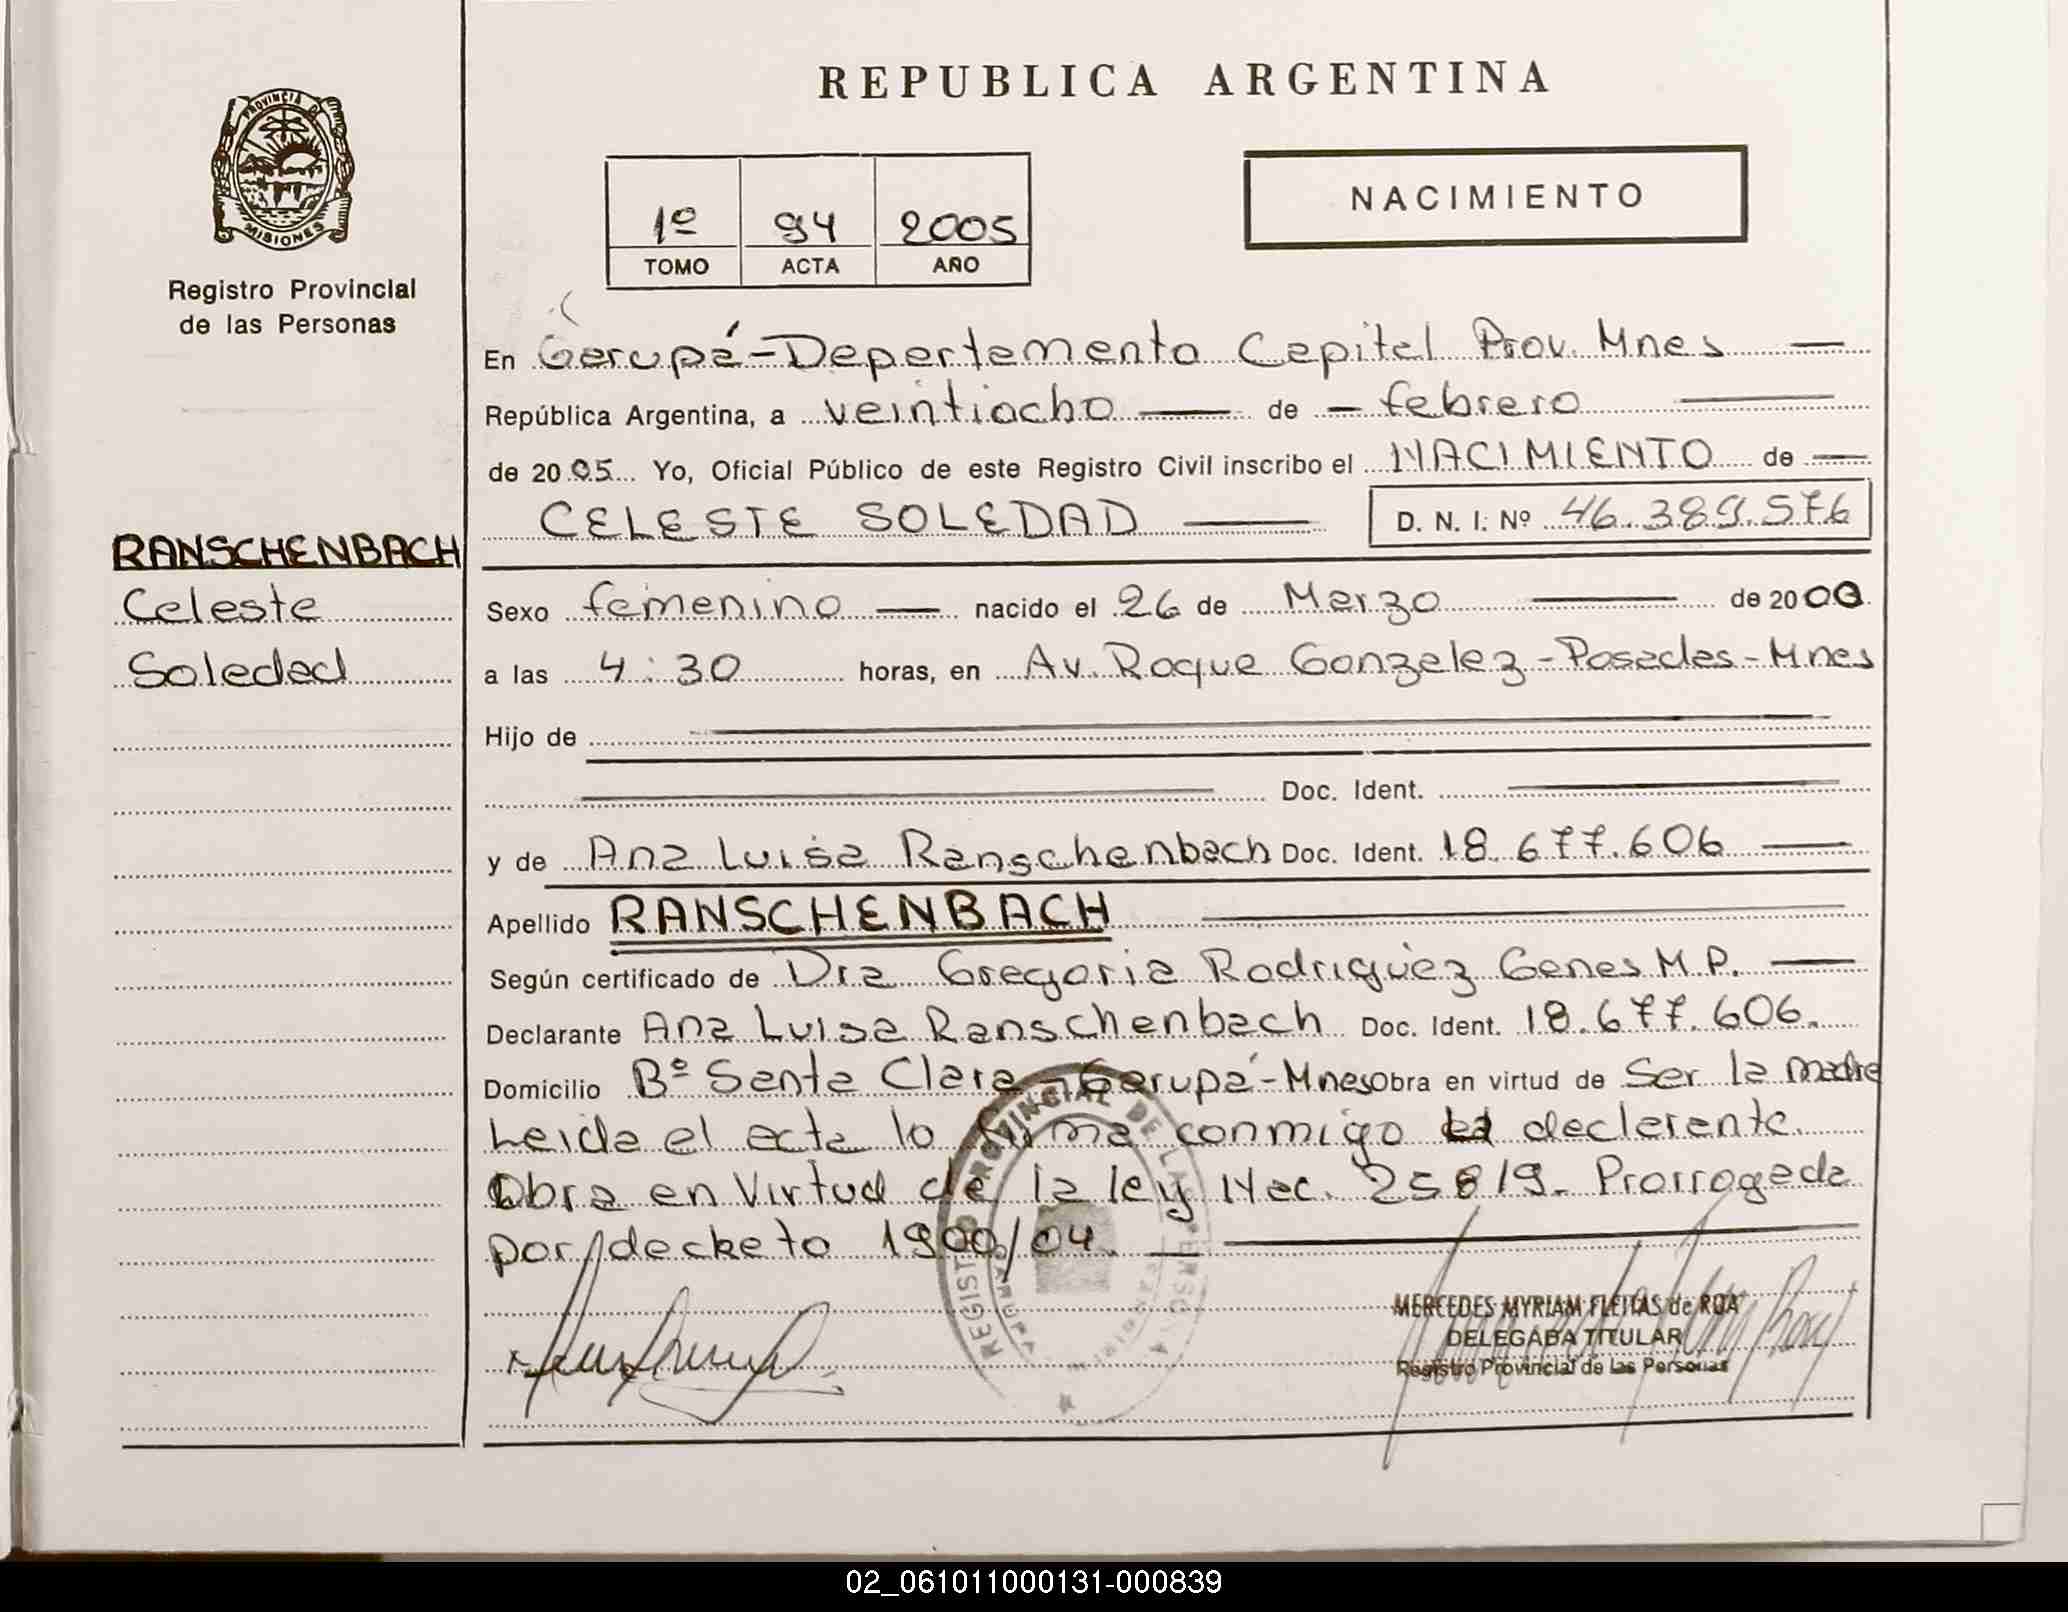 REPUBLICA ARGENTINA
PROVINCIA DE
MISIONES
Registro Provincial
de las Personas
NACIMIENTO
1º 94 2005
TOMO ACTA AÑO
En Garupá-Departamento Capital Prov. Mnes
República Argentina, a veintiocho de febrero
de 2005 Yo, Oficial Público de este Registro Civil inscribo el NACIMIENTO de
CELESTE SOLEDAD D. N. I. Nº 46.389.576
RANSCHENBACH
Celeste
Soledad
Sexo femenino nacido el 26 de Marzo de 2000
a las 4:30 horas, en Av. Roque Gonzalez-Posadas-Mnes
Hijo de
Doc. Ident.
y de Ana Luisa Ranschenbach Doc. Ident. 18.677.606
Apellido RANSCHENBACH
Según certificado de Dra Gregoria Rodriguez Genes M.P.
Declarante Ana Luisa Ranschenbach Doc. Ident. 18.677.606.
Domicilio Bº Santa Clara-Garupá-Mnes Obra en virtud de Ser la madre
Leida el acta lo firma conmigo la declarante.
Obra en Virtud de la ley Nac. 25819. Prorrogada
por decreto 1900/04.
REGISTRO PROVINCIAL DE LAS PERSONAS
GARUPA
MERCEDES MYRIAM FLEITAS de ROA
DELEGADA TITULAR
Registro Provincial de las Personas
02_061011000131-000839